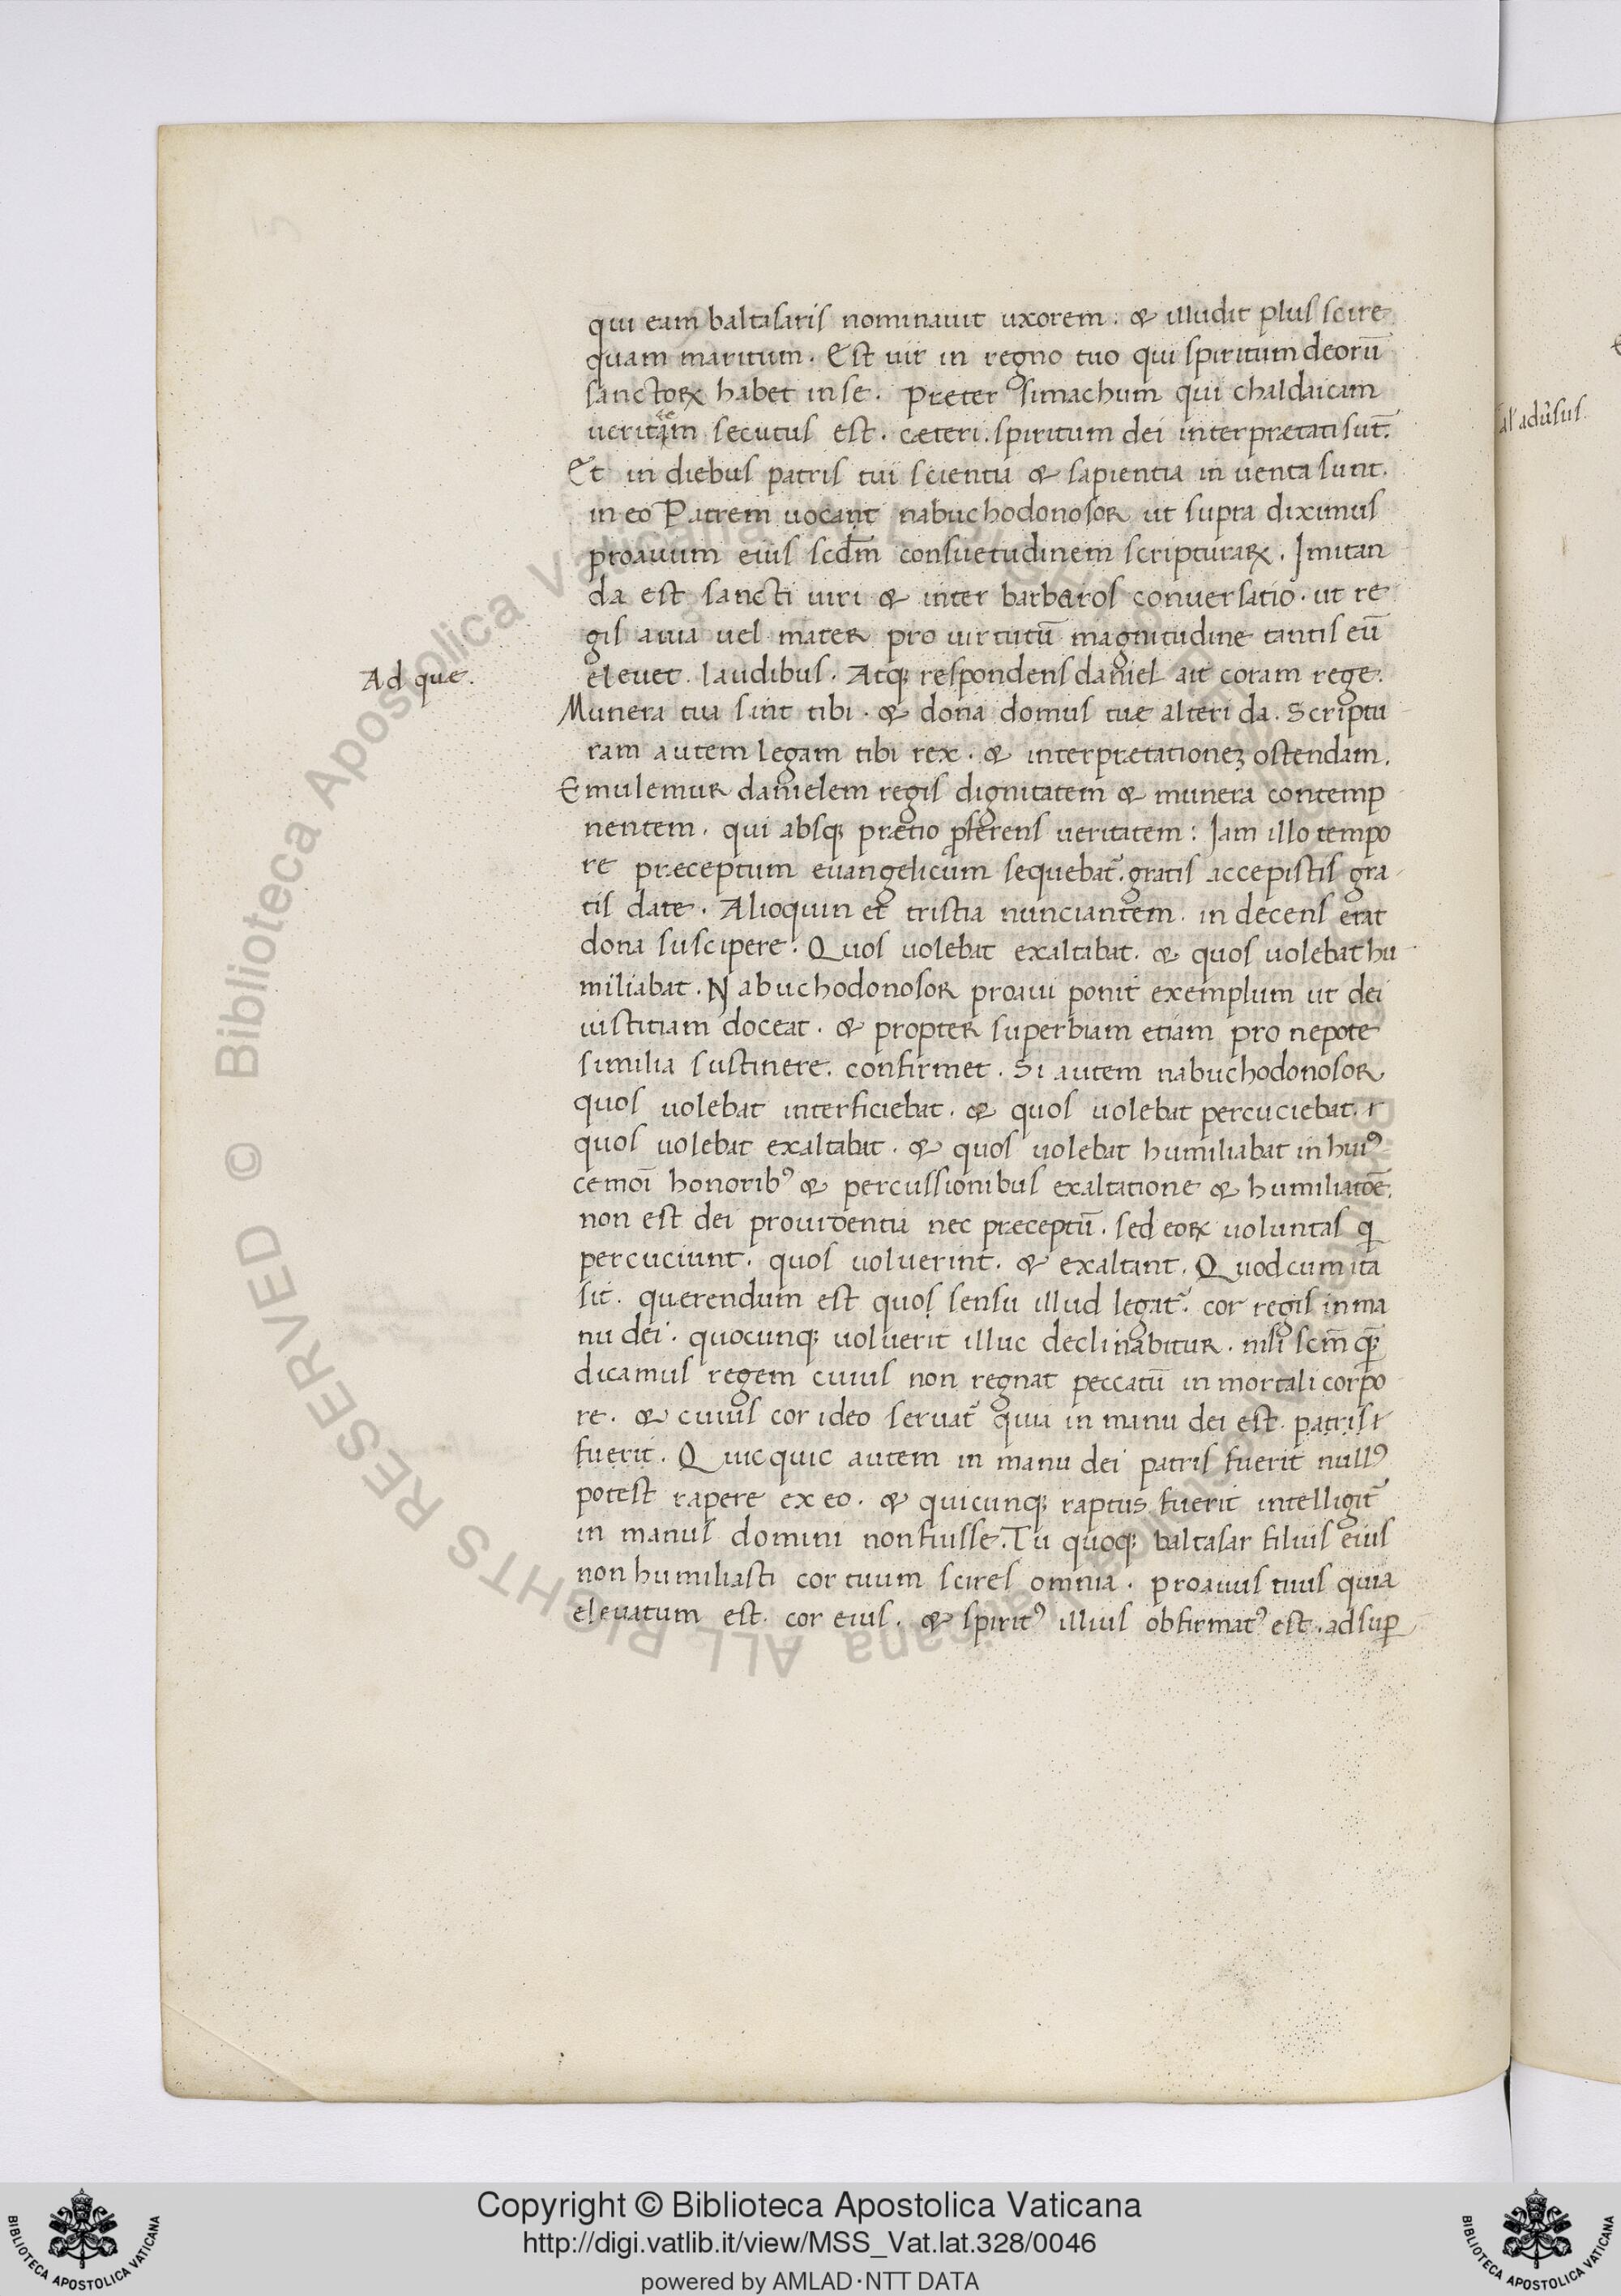 qui eam baltasaris nominauit uxorem . & illudit plus scire
quam maritum . Est uir in regno tuo qui spiritum deorū
sanctoꝝ habet in se . Preter simachum qui chaldaicam
secutus est . cæteri . spiritum dei interpretati sūt .
Et in diebus patris tui scientia & sapientia in uenta sunt .
in eo Patrem uocant nabuchodonosor ut supra diximus
proauum eius scdm̄ consuetudinem scripturaꝝ . Imitan
da est sancti uiri & inter barbaros conuersatio . ut re
gis auia uel mater pro uirtutū magnitudine tantis eū
Ad que .
eleuet . laudibus . Atqꝫ respondens daniel ait coram rege .
Munera tua sint tibi . & dona domus tue alteri da . Scriptu
ram autem legam tibi rex . & interpretationeꝫ ostendam .
Emulemur danielem regis dignitatem & munera contemp
nentem . qui absqꝫ prætio ꝓferens ueritatem : Iam illo tempo
re preceptum euangelicum sequebat̄ . gratis accepistis gra
tis date . Alioquin et tristia nunciantem . in decens erat
dona suscipere . Quos uolebat exaltabat . & quos uolebat hu
miliabat . Nabuchodonosor proaui ponit exemplum ut dei
iustitiam doceat . & propter superbiam etiam pro nepote
similia sustinere . confirmet . Si autem nabuchodonosor
quos uolebat interficiebat . & quos uolebat percuciebat .
quos uolebat exaltabat . & quos uolebat humiliabat in huiꝰ
cemoī honoribꝰ & percussionibus exaltatione & humiliatōe .
non est dei prouidentia nec preceptū . sed eoꝝ uoluntas q
percuciunt . quos uoluerint . & exaltant . Quod cum ita
sit . querendum est quos sensu illud legat̄ . cor regis in ma
nu dei . quocunqꝫ uoluerit illuc declinabitur . nisi scm̄
dicamus regem cuius non regnat peccatū in mortali corpo
re . & cuius cor ideo seruat̄ quia in manu dei est . patris
fuerit . Quicquic autem in manu dei patris fuerit nullꝰ
potest rapere ex eo . & quicunqꝫ raptus fuerit intelligit̄
in manus domini non fuisse . Tu quoqꝫ baltasar filius eius
non humiliasti cor tuum scires omnia . proauus tuus quia
eleuatum est . cor eius . & spiritꝰ illius obfirmatꝰ est . ad suꝑ
al' adūsus .
© Biblioteca Apostolica Vaticana ALL RIGHTS RESERVED
Copyright © Biblioteca Apostolica Vaticana
http://digi.vatlib.it/view/MSS_Vat.lat.328/0046
powered by AMLAD·NTT DATA
BIBLIOTECA APOSTOLICA VATICANA
BIBLIOTECA APOSTOLICA VATICANA